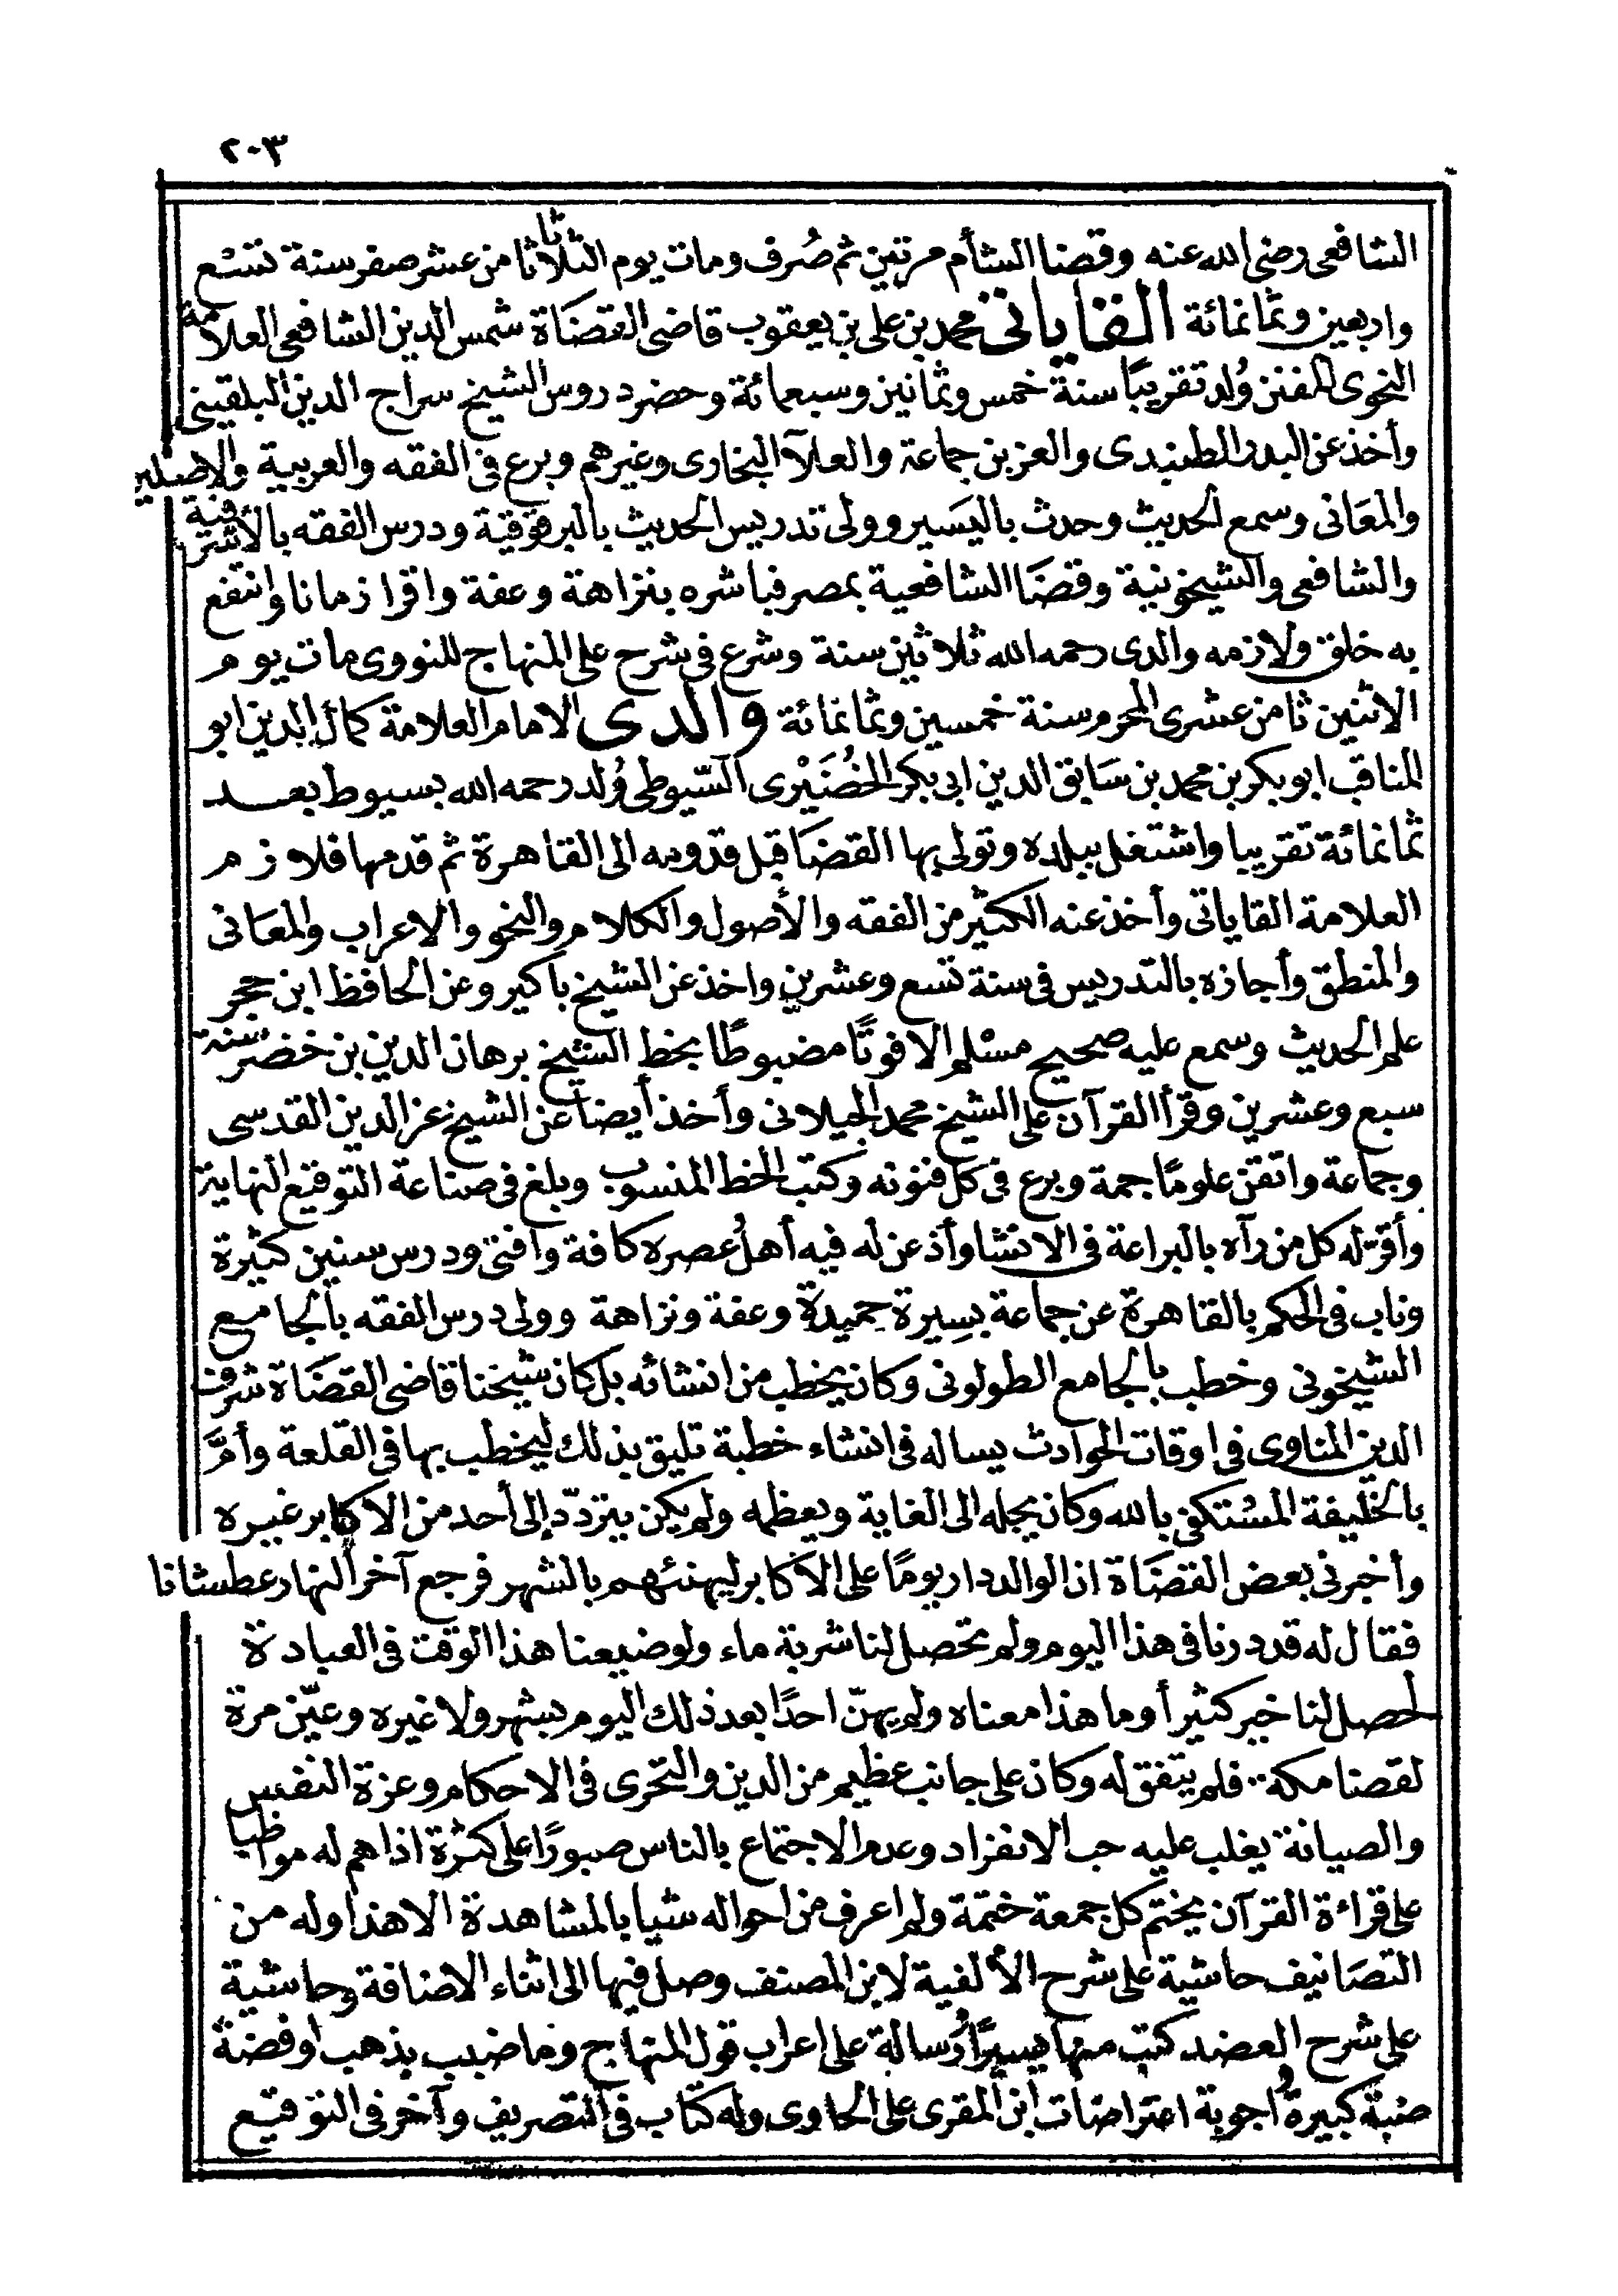 ٢٠٣
الشافعى رضى الله عنه وقضا الشأم مرتين ثم صُرف ومات يوم الثلاثا ثامن عشر صفر سنة تسع
واربعين وثمانمائة القاياتى محمد بن على بن يعقوب قاضى القضَاة شمس الدين الشافعى العلامة
النحوى المفنن وُلد تقريبًا سنة خمس وثمانين وسبعمائة وحضر دروس الشيخ سراج الدين البلقينى
وأخذ عن البدر الطنبدى والعز بن جماعة والعلآ البخارى وغيرهم وبرع فى الفقه والعربية والاصلين
والمعَانى وسمع الحديث وحدث باليَسير وولى تدريس الحديث بالبرقوقية ودرس الفقه بالأشرفية
والشافعى والشيخونية وقضَا الشافعية بمصر فباشره بنزاهة وعفة واقرا زمانا وانتفع
به خلق ولازمه والدى رحمه الله ثلاثين سنة وشرع فى شرح على المنهاج للنووى مات يوم
الاثنين ثامن عشرى المحرم سنة خمسين وثمانمائة والدى الامام العلامة كمال الدين ابو
المناقب ابو بكر بن محمد بن سَابق الدين ابى بكر الخُضَيْرى السّيوطى وُلد رحمه الله بسيوط بعد
ثمانمائة تقريبا واشتغل ببلده وتولى بها القضَا قبل قدومه الى القاهرة ثم قدمها فلازم
العلامة القاياتى وأخذ عنه الكثير من الفقه والأصول والكلام والنحو والاعراب والمعَانى
والمنطق وأجازه بالتدريس فى سنة تسع وعشرين واخذ عن الشيخ باكير وعن الحافظ ابن حجر
علم الحديث وسمع عليه صحيح مسْلم الا فوتًا مضبوطًا بخط الشيخ برهان الدين بن خضر سنة
سبع وعشرين وقرأ القرآن على الشيخ محمد الجيلانى وأخذ أيضا عن الشيخ عز الدين القدسى
وجماعة واتقن علومًا جمة وبرع فى كل فنونه وكتب الخط المنسوب وبلغ فى صناعة التوقيع النهاية
وأقر له كل من رآه بالبراعة فى الانشا وأذعن له فيه أهلُ عصره كافة وأفتى ودرس سنين كثيرة
وناب فى الحكم بالقاهرة عن جماعة بسِيرة حميدة وعفة ونزاهة وولى درس الفقه بالجامع
الشيخونى وخطب بالجامع الطولونى وكان يخطب من انشائه بل كان شيخنا قاضى القضَاة شرف
الدين المناوى فى اوقات الحوادث يساله فى انشاء خطبة تليق بذلك ليخطب بها فى القلعة وأمَّ
بالخليفة المسْتكفى بالله وكان يجله الى الغاية ويعظمه ولم يكن يتردّد إلى أحد من الاكابر غيره
وأخبرنى بعض القضَاة ان الوالد دار يومًا على الاكابر ليهنئهم بالشهر فرجع آخر النهار عطشانا
فقال له قد درنا فى هذا اليوم ولم تحصل لنا شربة ماء ولو ضيعنا هذا الوقت فى العبادة
لحصل لنا خير كثير أو ما هذا معناه ولم يهنّ احدًا بعد ذلك اليوم بشهر ولا غيره وعيّن مرة
لقضا مكه فلم يتفق له وكان على جانب عظيم من الدين والتحرى فى الاحكام وعزة النفس
والصيانة يغلب عليه حب الانفراد وعدم الاجتماع بالناس صبورًا على كثرة اذاهم له مواظبا
على قراءة القرآن يختم كل جمعة ختمة ولم اعرف من احواله شيا بالمشاهدة الا هذا وله من
التصَانيف حاشية على شرح الألفية لابن المصنف وصل فيها الى اثناء الاضافة وحاشية
على شرح العضد كتب منها يسيرًا ورسالة على اعراب قول المنهاج وما ضبب بذهب او فضة
ضبة كبيرة واجوبة اعتراضات ابن المقرى على الحاوى وله كتاب فى التصريف وآخر فى التوقيع